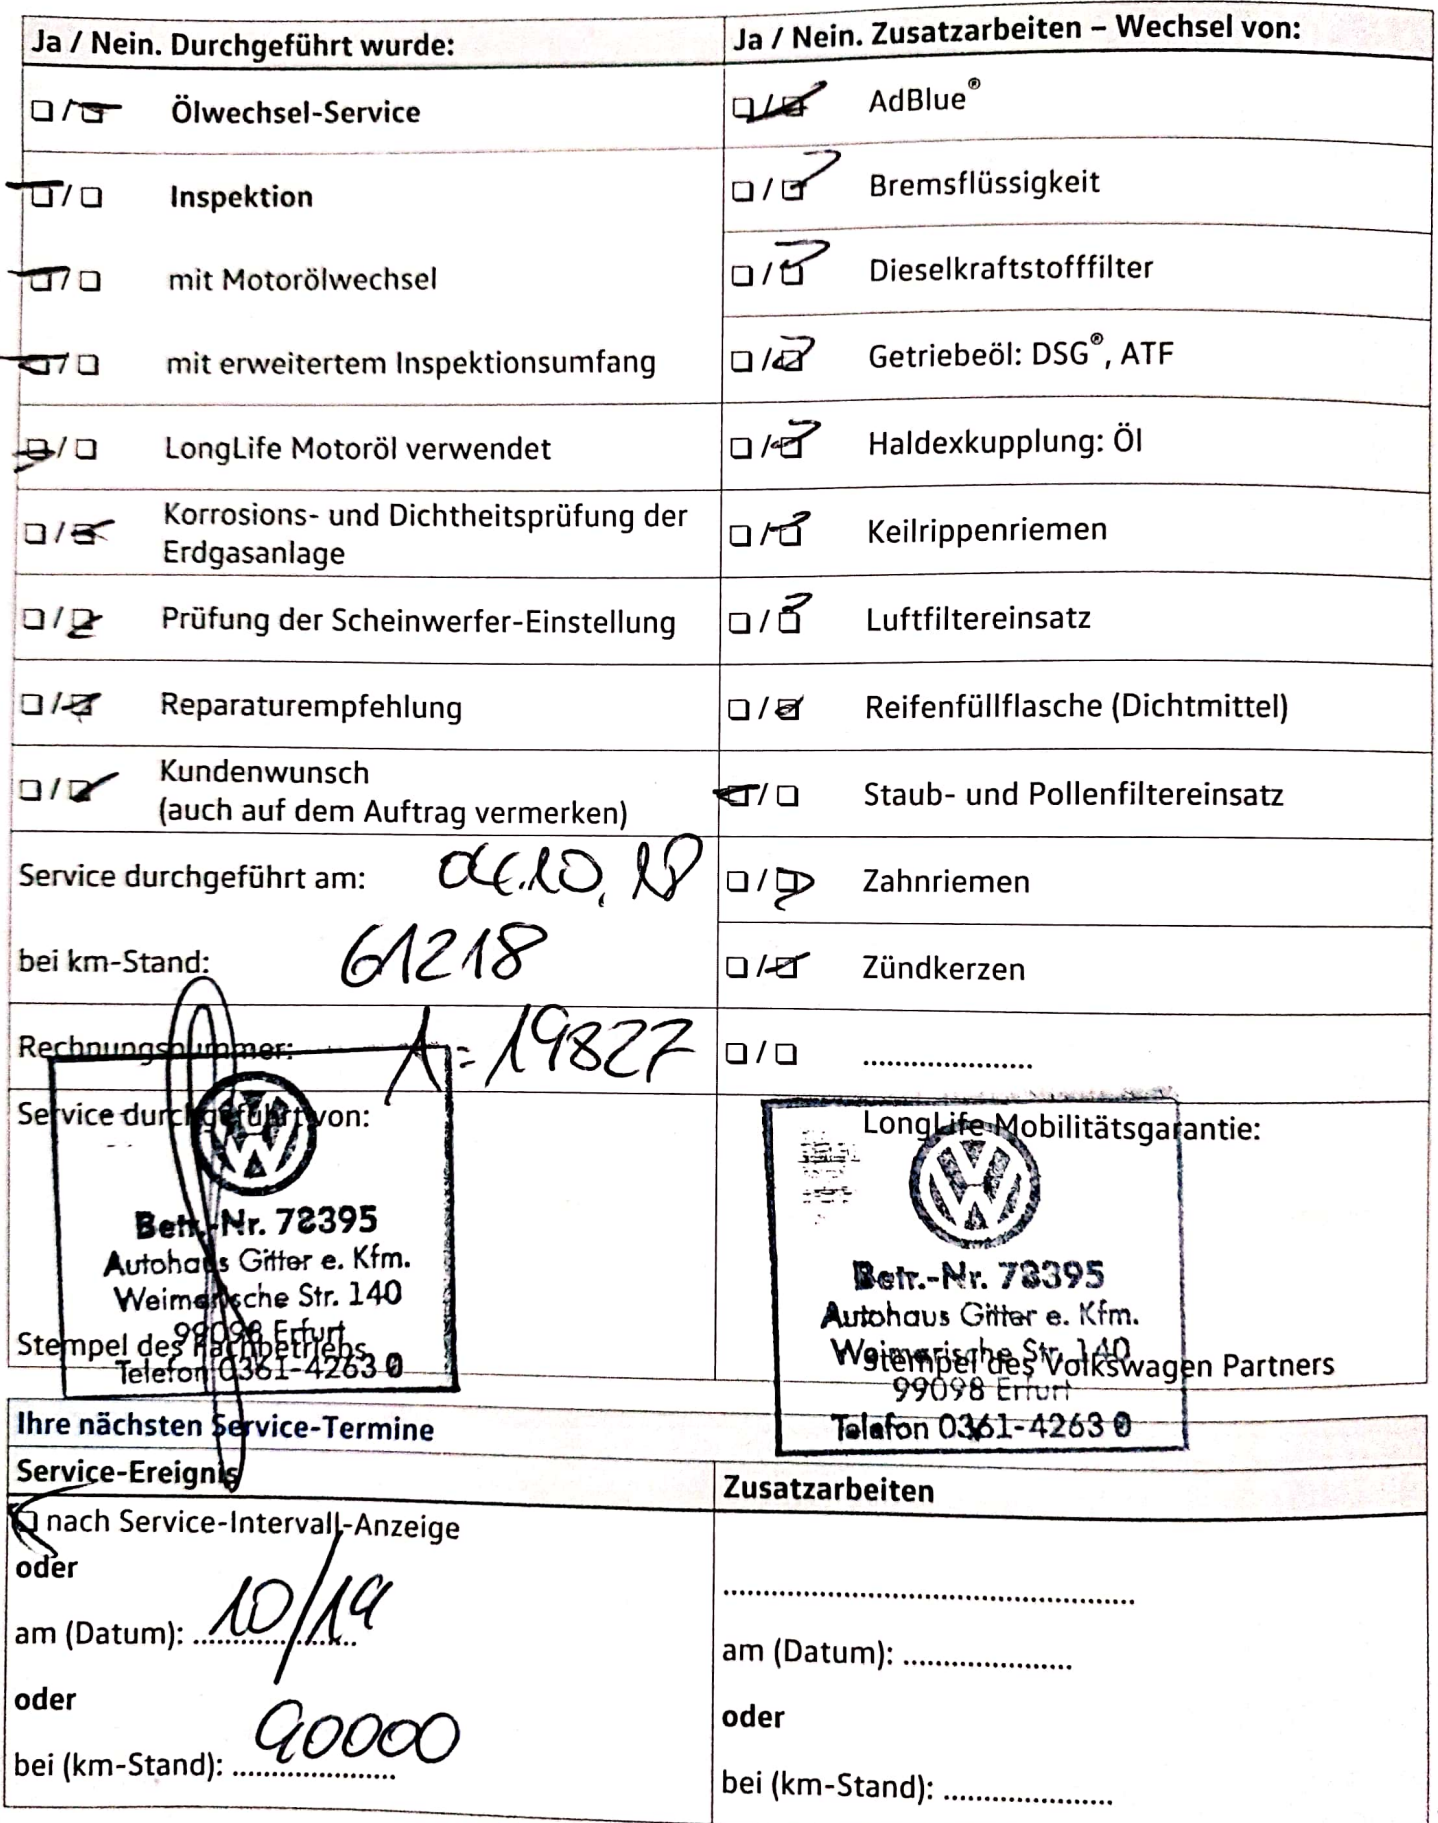 Ja / Nein. Durchgeführt wurde:
Ölwechsel-Service
Inspektion
mit Motorölwechsel
mit erweitertem Inspektionsumfang
LongLife Motoröl verwendet
Korrosions- und Dichtheitsprüfung der
Erdgasanlage
Prüfung der Scheinwerfer-Einstellung
Reparaturempfehlung
Kundenwunsch
(auch auf dem Auftrag vermerken)
Service durchgeführt am:
bei km-Stand: 61218
Rechnungsnummer: 19827
Service durchgeführt von:
Betr.-Nr. 78395
Autohaus Gitter e. Kfm.
Weimarische Str. 140
99098 Erfurt
Stempel des Fachbetriebs
Telefon 0361-4263 0
Ja / Nein. Zusatzarbeiten – Wechsel von:
AdBlue®
Bremsflüssigkeit
Dieselkraftstofffilter
Getriebeöl: DSG®, ATF
Haldexkupplung: Öl
Keilrippenriemen
Luftfiltereinsatz
Reifenfüllflasche (Dichtmittel)
Staub- und Pollenfiltereinsatz
Zahnriemen
Zündkerzen
....................
LongLife Mobilitätsgarantie:
Betr.-Nr. 78395
Autohaus Gitter e. Kfm.
Weimarische Str. 140
Stempel des Volkswagen Partners
99098 Erfurt
Telefon 0361-4263 0
Ihre nächsten Service-Termine
Service-Ereignis
nach Service-Intervall-Anzeige
oder
am (Datum): 10/19
oder
bei (km-Stand): 90000
Zusatzarbeiten
am (Datum): ....................
oder
bei (km-Stand): ....................